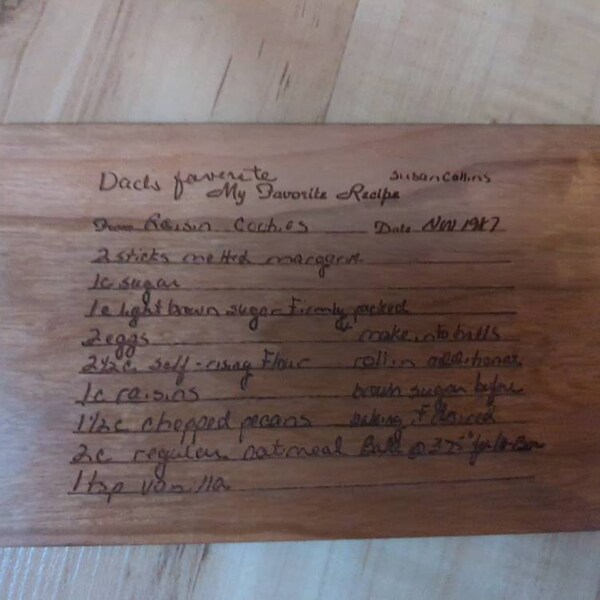 Dads favorite Susan Collins
My Favorite Recipe
From Raisin Cookies Date Nov 1987
2 sticks melted margarine
1c sugar
1c light brown sugar firmly packed
2 eggs make into balls
2 1/2 c. self-rising flour roll in additional
1c raisins brown sugar before
1 1/2 c chopped pecans baking if desired
2c regular oatmeal Bake @ 375° for
1 tsp vanilla